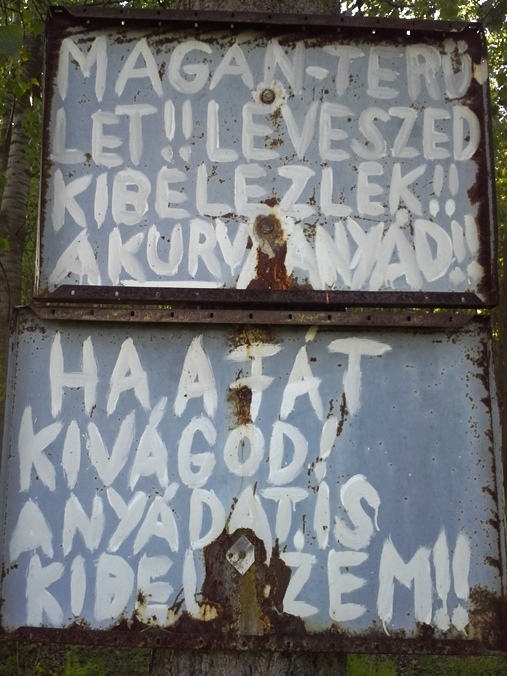 MAGÁN-TERÜ
LET!! LEVESZED
KIBELEZLEK!!
A KURVA ANYÁD!!
HA A FÁT
KIVÁGOD!
ANYÁDAT.IS
KIBELEZEM!!